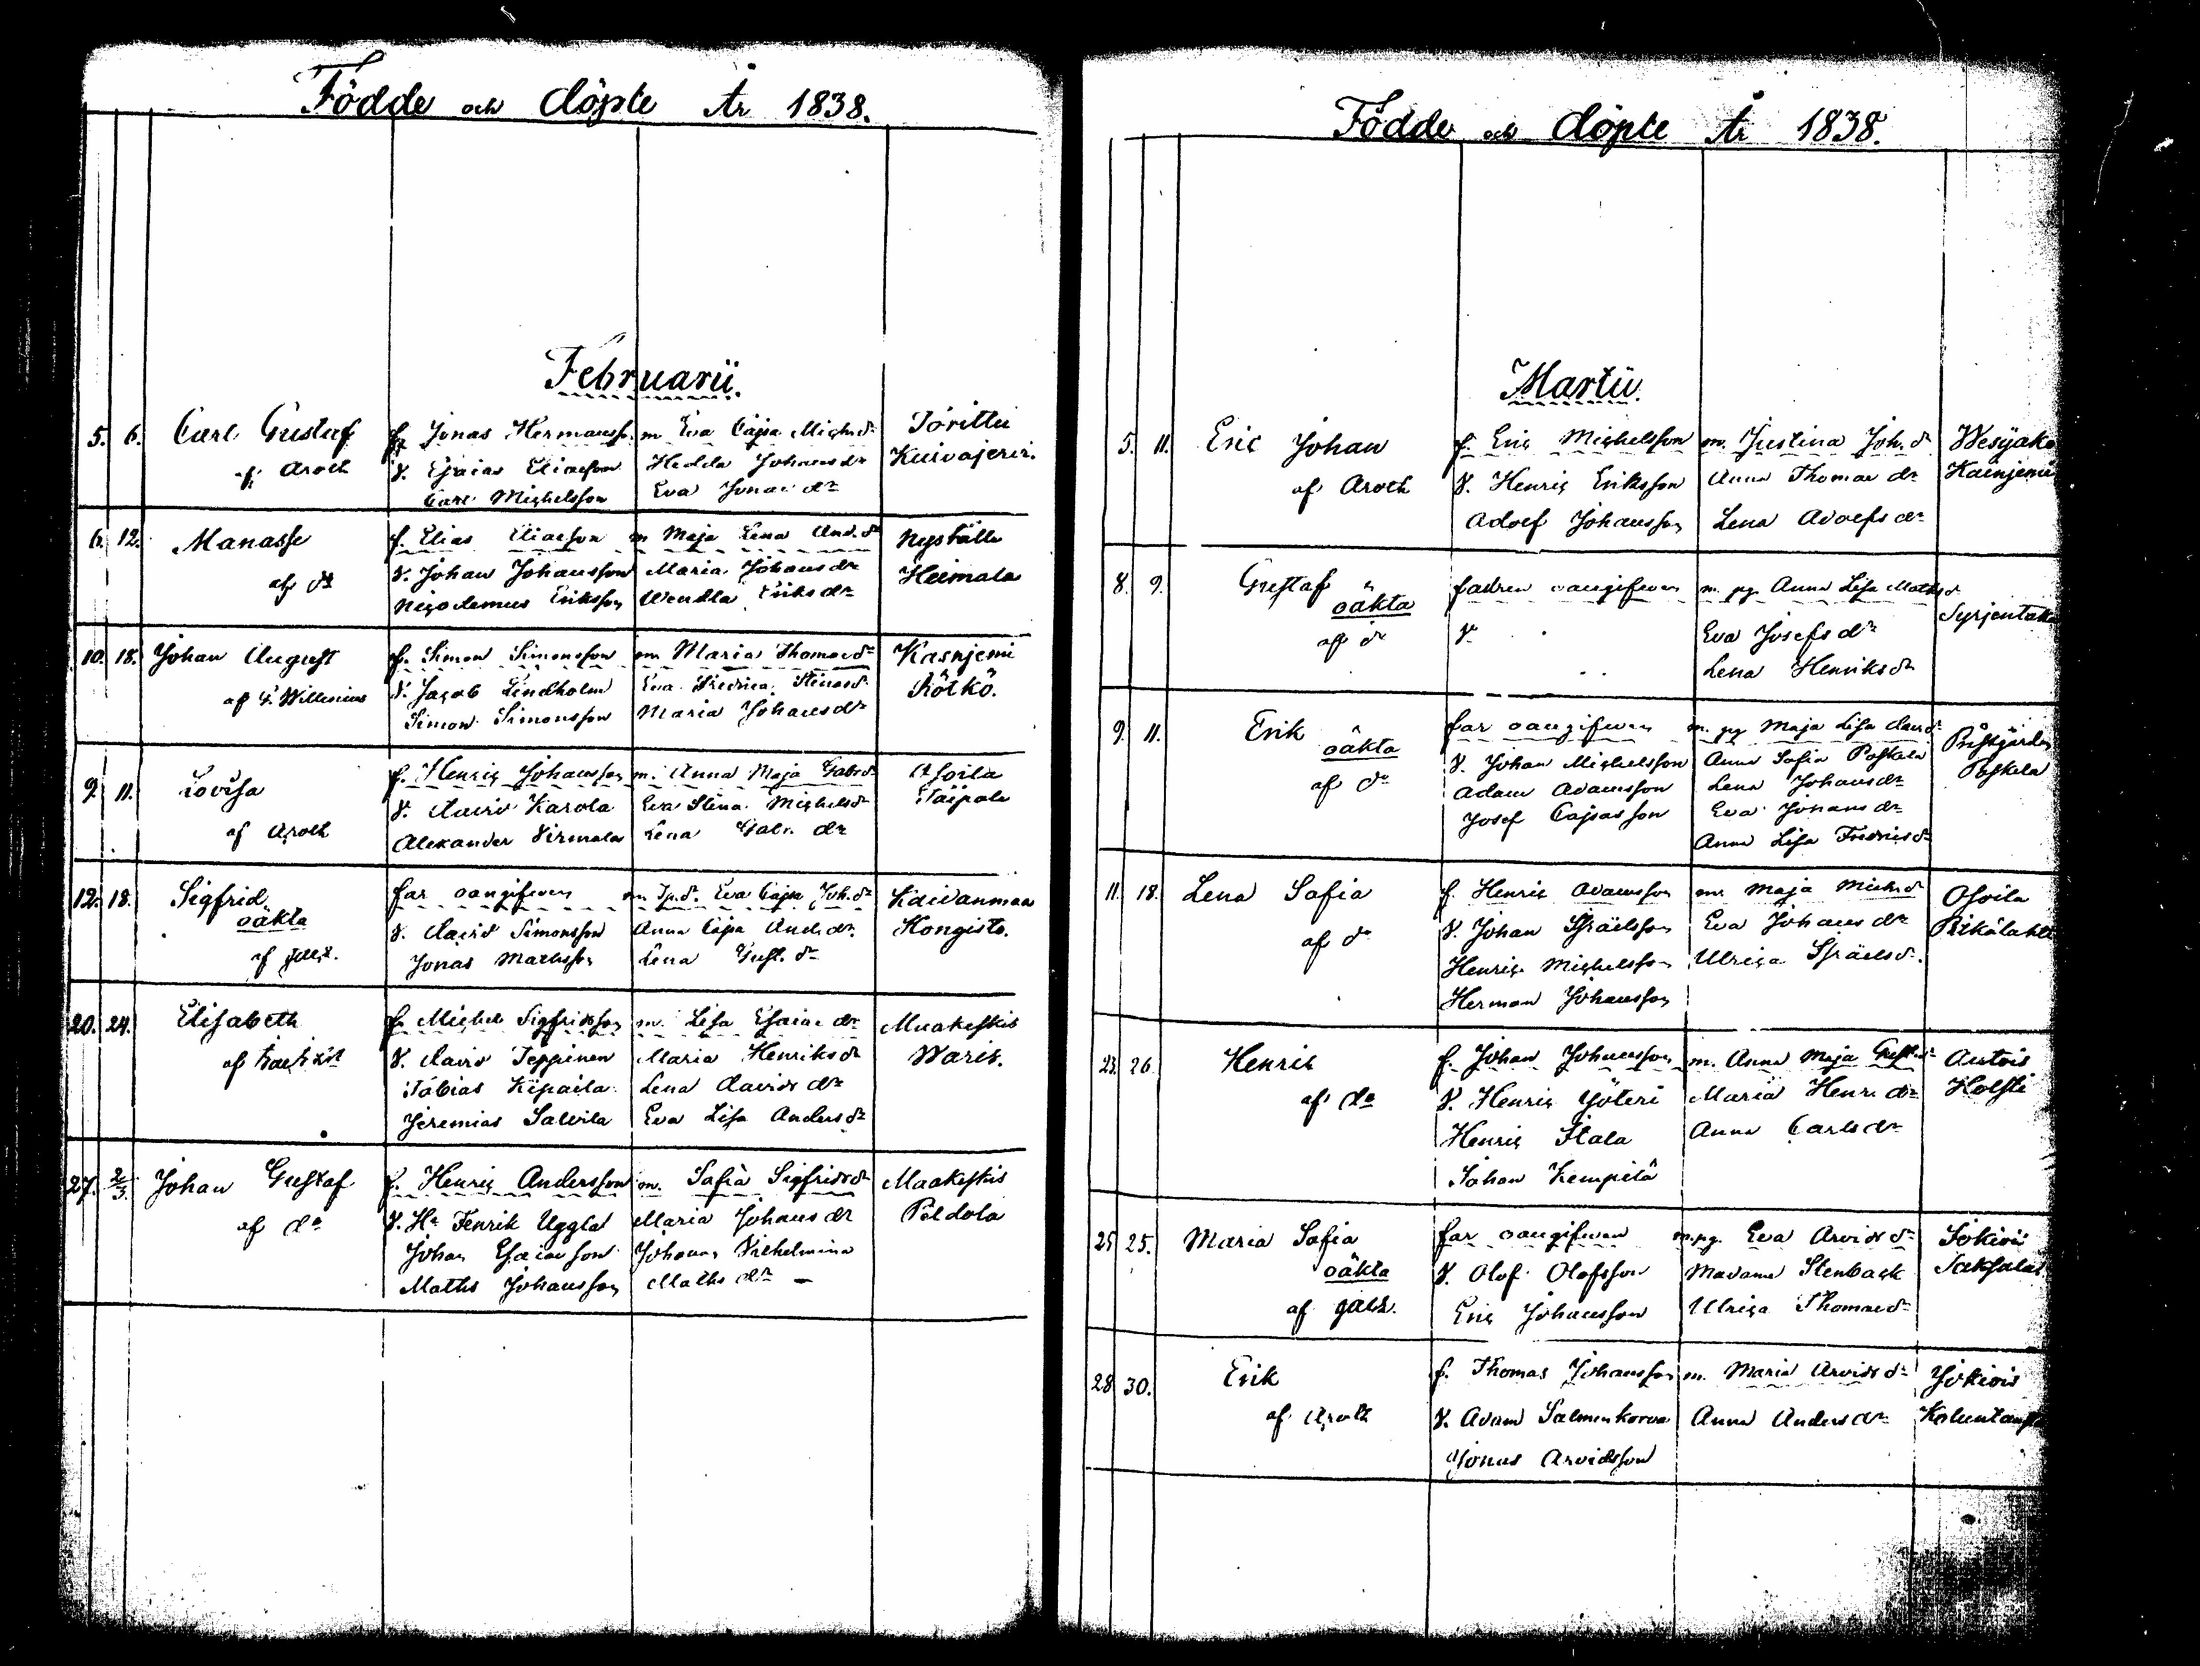 Födde och döpte År 1838.
Februarii.
5. 6. Carl Gustaf f. Jonas Hermansson m Eva Cajsa Michs dr
af Aroth V. Esaias Eliaeson Hedda Johans dr Kuivajervi.
Carl Michelsson Eva Jonae dr
6. 12. Manasse f. Elias Eliaeson m Maja Lena And. dr Nyställe
af do V. Johan Johansson Maria Johans dr Heimala
Nicodemus Eriksson Wendla Eriks dr
10. 18. Johan August f. Simon Simonsson m Maria Thomae dr Kasnjemi
af Willenius V. Jacob Lindholm Eva Fredrica Rötkö.
Simon Simonsson Maria Johans dr
9. 11. Lovisa f. Henric Johansson m. Anna Maja Gabr dr
V. David Karola Eva Stina Michels dr Taipale
af Aroth Alexander Virmala Lena Gabr. dr
12. 18. Sigfrid far oangifven m Eva Cajsa Joh. dr Kaidanmaa
oäkta V. David Simonsson Anna Cajsa And. dr Kongisto.
af Jonas Mathsson Lena Gust. dr
20. 24. Elisabeth f. Michel Sigfridsson m. Lisa Esaiae dr Maakeskis
af V. David Teppinen Maria Henriks dr Waris.
Tobias Kipaila Lena Davids dr
Jeremias Salvila Eva Lisa Anders dr
27. 2/3. Johan Gustaf f. Henric Andersson m. Safia Sigfrids dr Maakeskis
af do V. Hr Fenrik Uggla Maria Johans dr Peldola
Johan Esaiaeson Johanna Vilhelmina
Maths Johansson Maths dr –
Födde och döpte År 1838.
Martii.
5. 11. Eric Johan f. Eric Michelsson m. Justina Joh. dr
af Aroth V. Henric Eriksson Anna Thomae dr
Adolf Johansson Lena Adolfs dr
8. 9. Gustaf fadren oangifven m. pg. Anna Lisa Maths dr
oäkta Syrjentaka
af do V. Eva Josefs dr
Lena Henriks dr
9. 11. Erik far oangifven m. pg Maja Lisa Davids dr
oäkta V. Johan Michelsson Anna Safia Paskala Paskala
af do Adam Adamsson Lena Johans dr
Josef Cajsasson Eva Jonans dr
Anna Lisa Fredrics dr
11. 18. Lena Safia f. Henric Adamsson m. Maja Mich. dr Osoila
af do V. Johan Israelsson Eva Johans dr
Henric Michelsson Ulrica Israels dr.
Herman Johansson
23. 26. Henrik f. Johan Johansson m. Anna Maja Gust. dr Autois
af do V. Henric Yöteri Maria Henr. dr Holsti
Henric Stala Anna Carls dr
Johan Kempilä
25 25. Maria Safia far oangifven m. pg. Eva Arvids dr Jokiois
oäkta V. Olof Olofsson Madame Stenback
af Eric Johansson Ulrica Thomae dr
28 30. Erik f. Thomas Johansson m. Maria Arvids dr Jokiois
af Aroth V. Adam Salmenkorva Anna Anders dr
Jonas Arvidsson